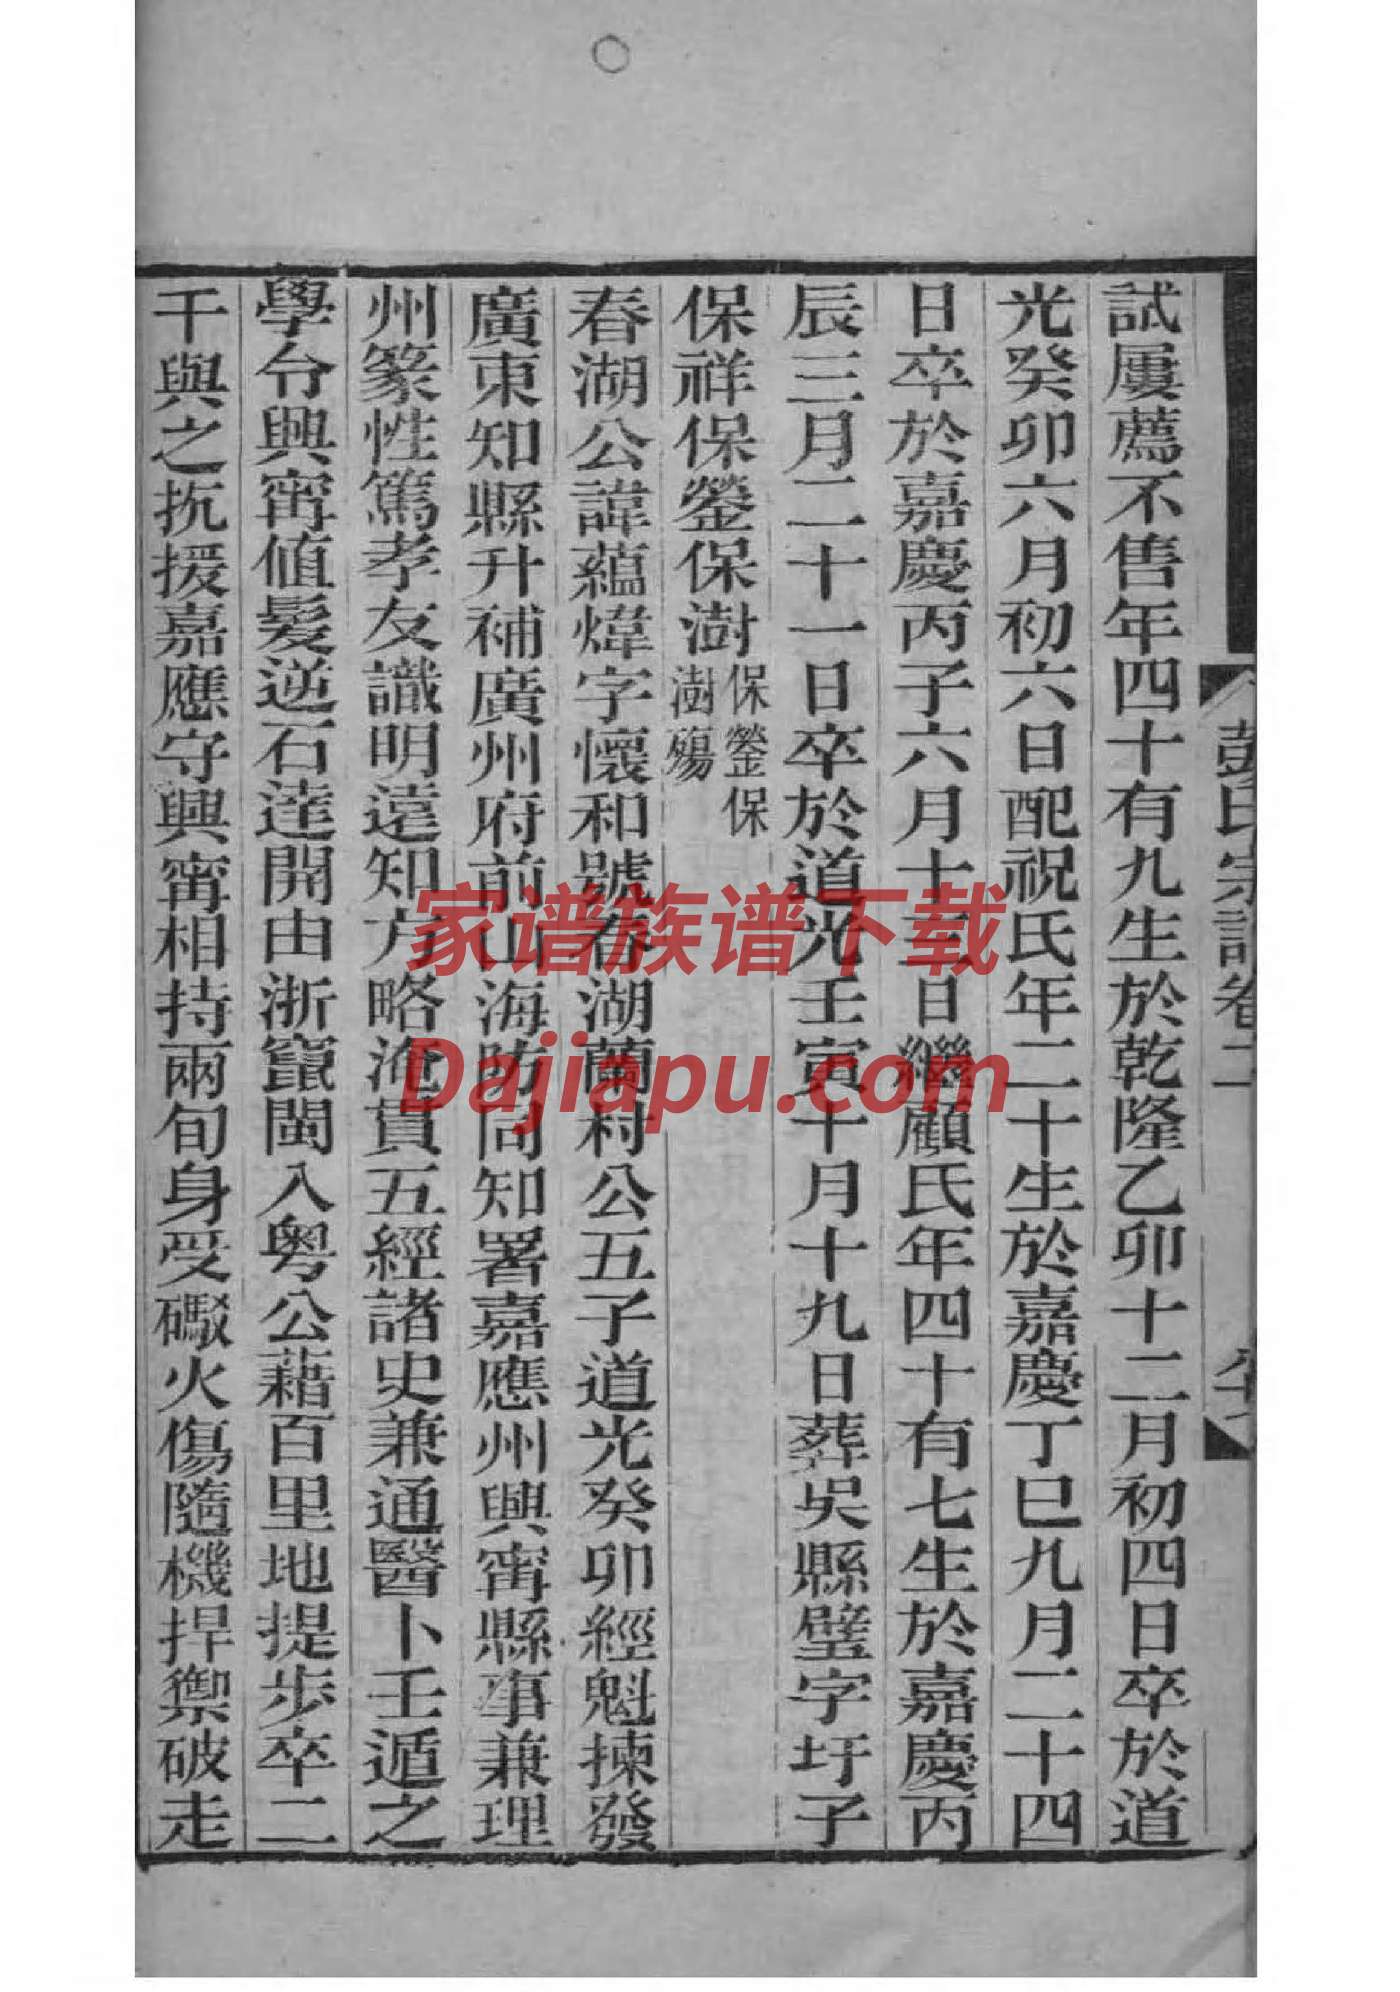 試屢薦不售年四十有九生於乾隆乙卯十二月初四日卒於道
光癸卯六月初六日配祝氏年二十生於嘉慶丁巳九月二十四
日卒於嘉慶丙子六月十三日繼顧氏年四十有七生於嘉慶丙
辰三月二十一日卒於道光壬寅十月十九日葬吳縣璧字圩子
保祥保鎣保澍保鎣保
澍殤
春湖公諱蘊煒字懷和號春湖蘭村公五子道光癸卯經魁揀發
廣東知縣升補廣州府前山海防同知署嘉應州興甯縣事兼理
州篆性篤孝友識明遠知方略淹貫五經諸史兼通醫卜壬遁之
學令興甯值髮逆石達開由浙竄閩入粤公藉百里地提步卒二
千與之抗援嘉應守興甯相持兩旬身受礮火傷隨機捍禦破走
彭氏宗譜卷二
家谱族谱下载
Dajiapu.com